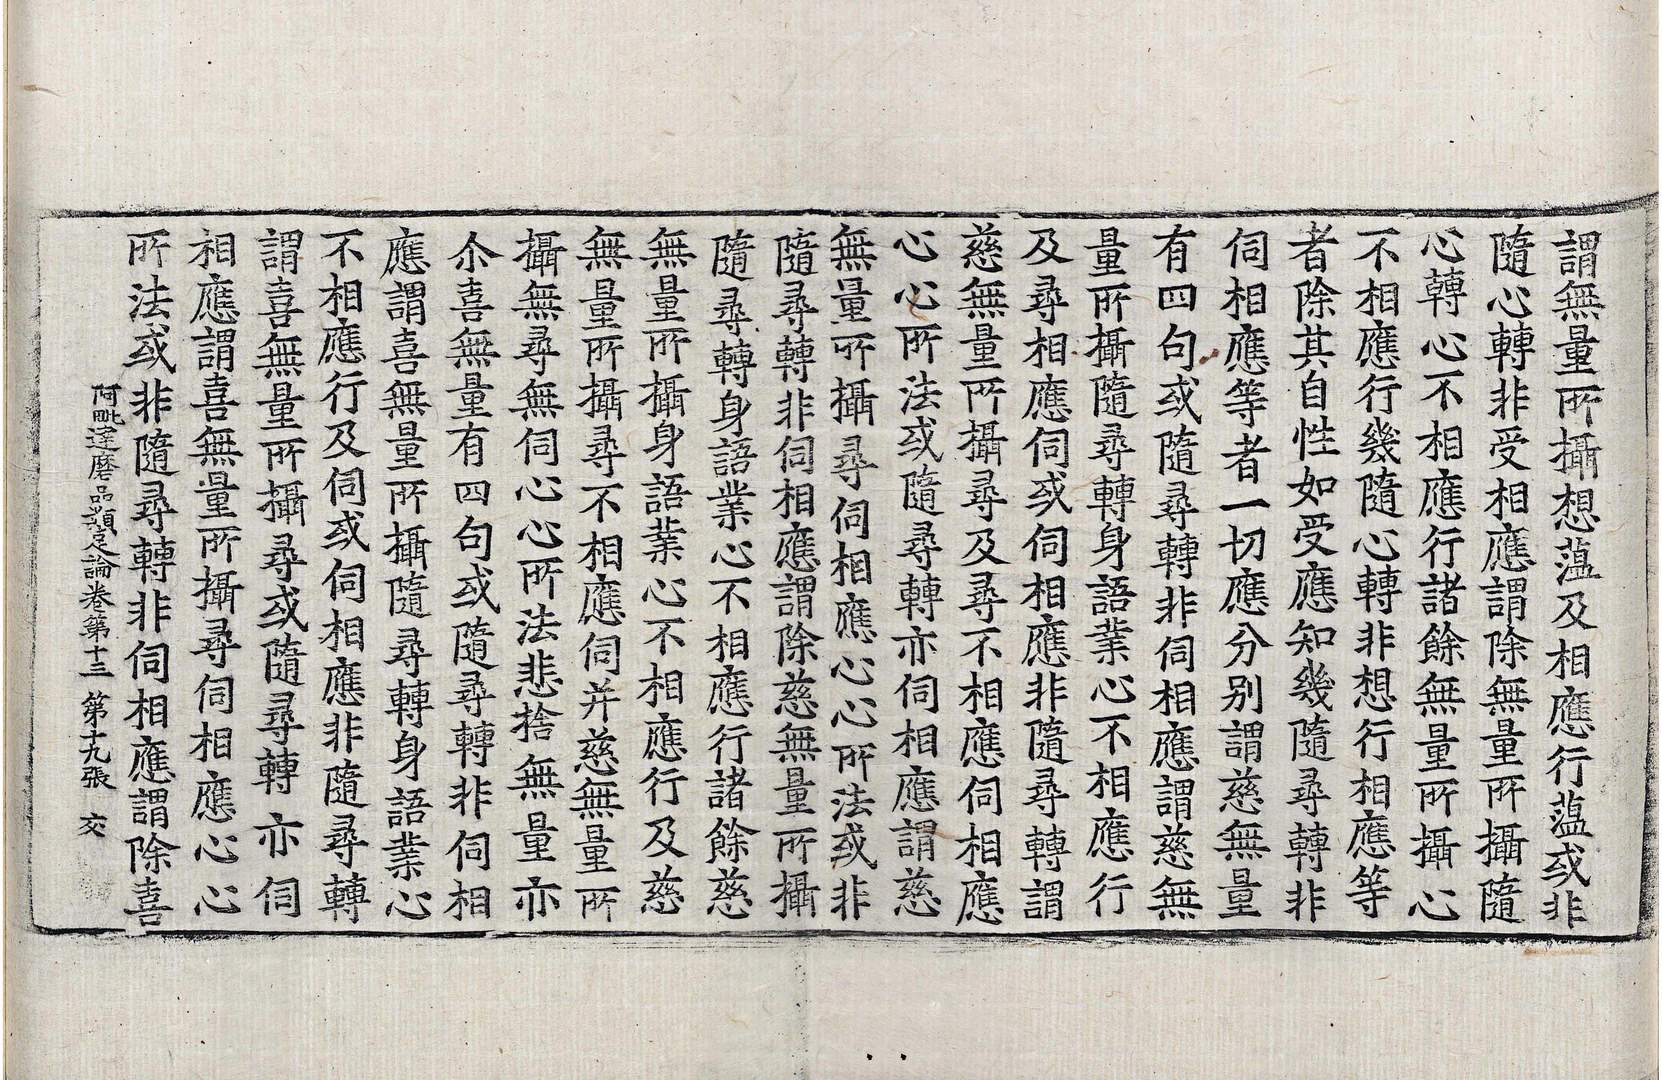 謂無量所攝想薀及相應行薀或非
隨心轉非受相應謂除無量所攝隨
心轉心不相應行諸餘無量所攝心
不相應行幾隨心轉非想行相應等
者除其自性如受應知幾隨尋轉非
伺相應等者一切應分别謂慈無量
有四句或隨尋轉非伺相應謂慈無
量所攝隨尋轉身語業心不相應行
及尋相應伺或伺相應非隨尋轉謂
慈無量所攝尋及尋不相應伺相應
心心所法或隨尋轉亦伺相應謂慈
無量所攝尋伺相應心心所法或非
隨尋轉非伺相應謂除慈無量所攝
隨尋轉身語業心不相應行諸餘慈
無量所攝身語業心不相應行及慈
無量所攝尋不相應伺并慈無量所
攝無尋無伺心心所法悲捨無量亦
尒喜無量有四句或隨尋轉非伺相
應謂喜無量所攝隨尋轉身語業心
不相應行及伺或伺相應非隨尋轉
謂喜無量所攝尋或隨尋轉亦伺
相應謂喜無量所攝尋伺相應心心
所法或非隨尋轉非伺相應謂除喜
阿毗達磨品類足論卷第十三 第十九張 交